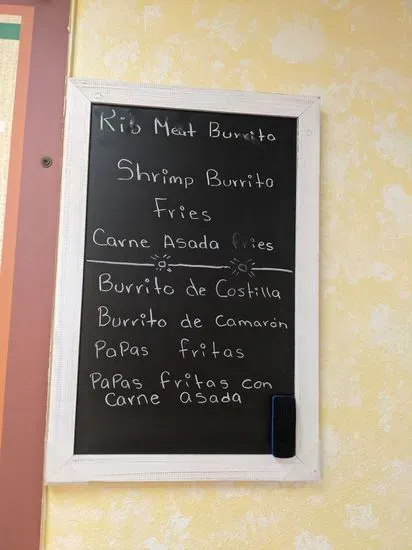 Rib Meat Burrito
Shrimp Burrito
Fries
Carne Asada Fries
Burrito de Costilla
Burrito de Camarón
Papas fritas
Papas fritas con
carne asada